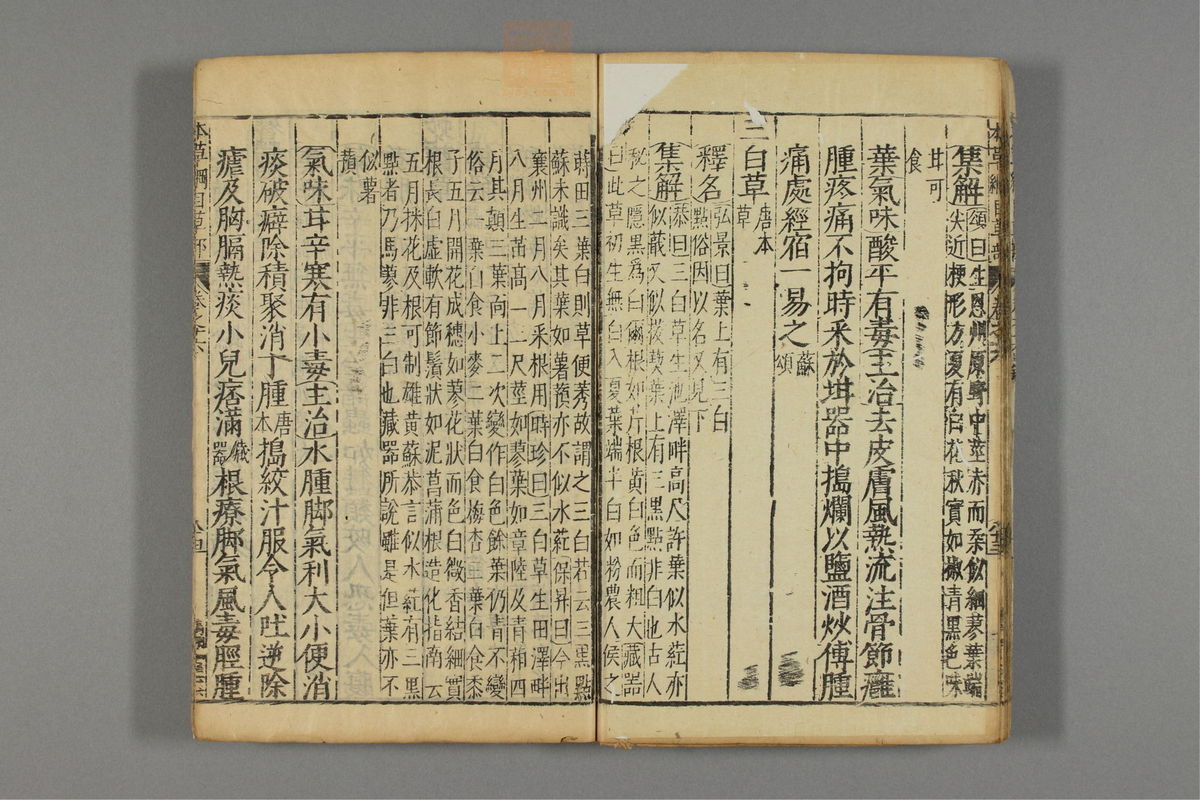 集解頌曰生恩州原野中莖赤而
尖近梗形方夏有宿花秋實如椒青黑色味
甘可
食
葉氣味酸平有毒主治去皮膚風熱流注骨節癰
腫疼痛不拘時采於坩器中搗爛以鹽酒炒傅腫
痛處經宿一易之蘇頌
三白草唐本草
釋名弘景曰葉上有三白
點俗因以名又見下
集解恭曰三白草生池澤畔高尺許葉似水葒亦
似蕺又似菝葜葉上有三黑點非白也古人
秘之隱黑爲白爾根如芹根黃白色而粗大藏器
曰此草初生無白入夏葉端半白如粉農人侯之
蒔田三葉白則草便秀故謂之三白若云三黑點
蘇未識矣其葉如薯蕷亦不似水葒保昇曰今出
襄州二月八月采根用時珍曰三白草生田澤畔
八月生苗高二三尺莖如蓼葉如章陸及青葙四
月其顛三葉向上三次變作白色餘葉仍青不變
俗云一葉白食小麥二葉白食梅杏三葉白食黍
子五月開花成穗如蓼花狀而色白微香結細實
根長白虛軟有節鬚狀如泥菖蒲根造化指南云
五月抹花及根可制雄黃蘇恭言似水葒有三黑
點者乃馬蓼非三白也藏器所說雖是但葉亦不
似薯
蕷
氣味甘辛寒有小毒主治水腫脚氣利大小便消
痰破癖除積聚消丁腫唐本搗絞汁服令人吐逆除
瘧及胸膈熱痰小兒痞滿藏器根療脚氣風毒脛腫
本草綱目草部